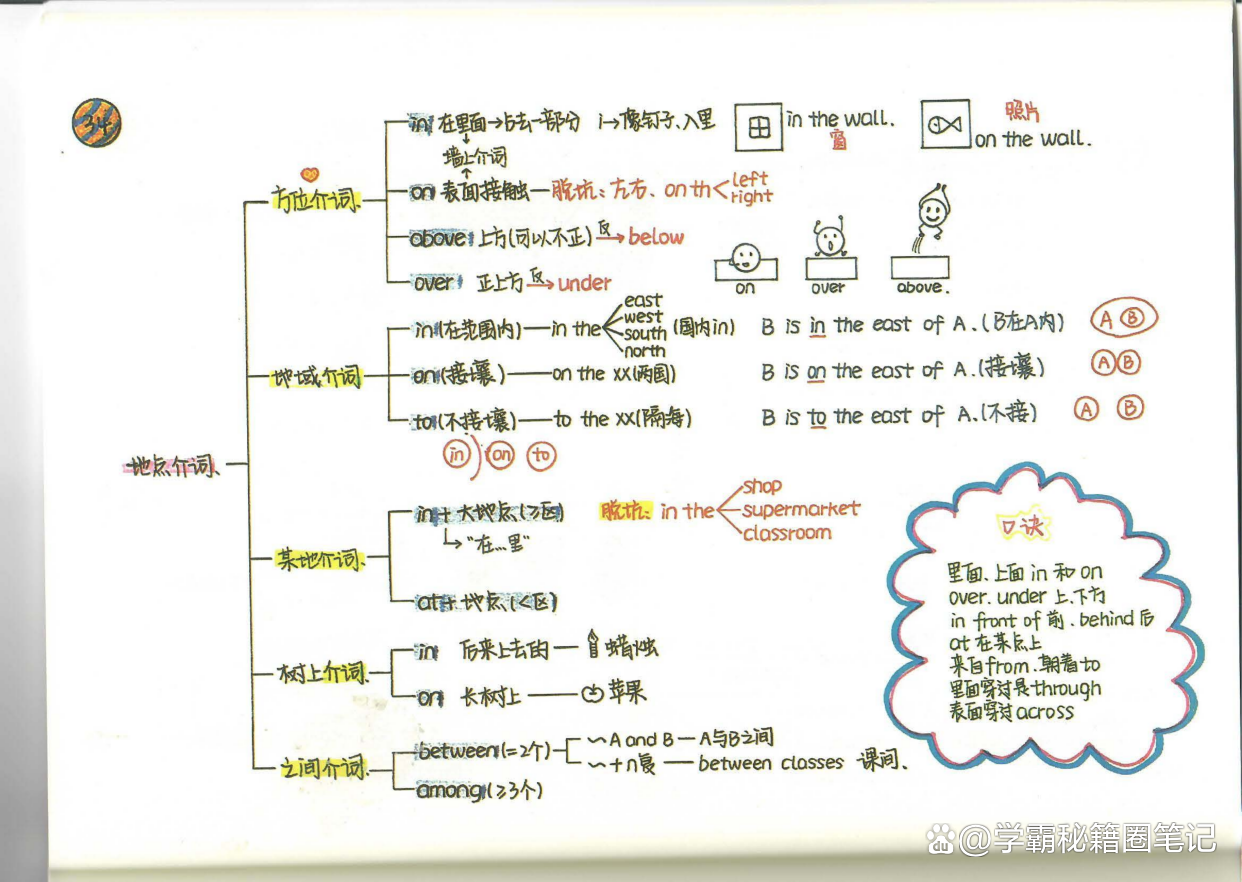 34
地点介词、
方位介词、
in 在里面→占去一部分 i→像钉子、入里
in the wall.
窗
照片
on the wall.
墙上介词
on 表面接触—脱坑：左右、on th
left
right
above 上方(可以不正) 反→below
over 正上方 反→under
on
over
above.
地域介词
in(在范围内)—in the
east
west
south
north
(国内in)
B is in the east of A.(B在A内)
A B
on(接壤)—on the xx(两国)
B is on the east of A.(接壤)
A B
to(不接壤)—to the xx(隔海)
B is to the east of A.(不接)
A B
in on to
某地介词、
in+大地点、(≥区)
→"在...里"
脱坑：in the
shop
supermarket
classroom
at+地点、(<区)
树上介词、
in 后来上去的—蜡烛
on 长树上—苹果
之间介词、
between(=2个)
~A and B—A与B之间
~+n复—between classes 课间、
among(≥3个)
口诀
里面、上面in和on
over.under上、下方
in front of前.behind后
at在某点上
来自from.朝着to
里面穿过是through
表面穿过across
du @学霸秘籍圈笔记